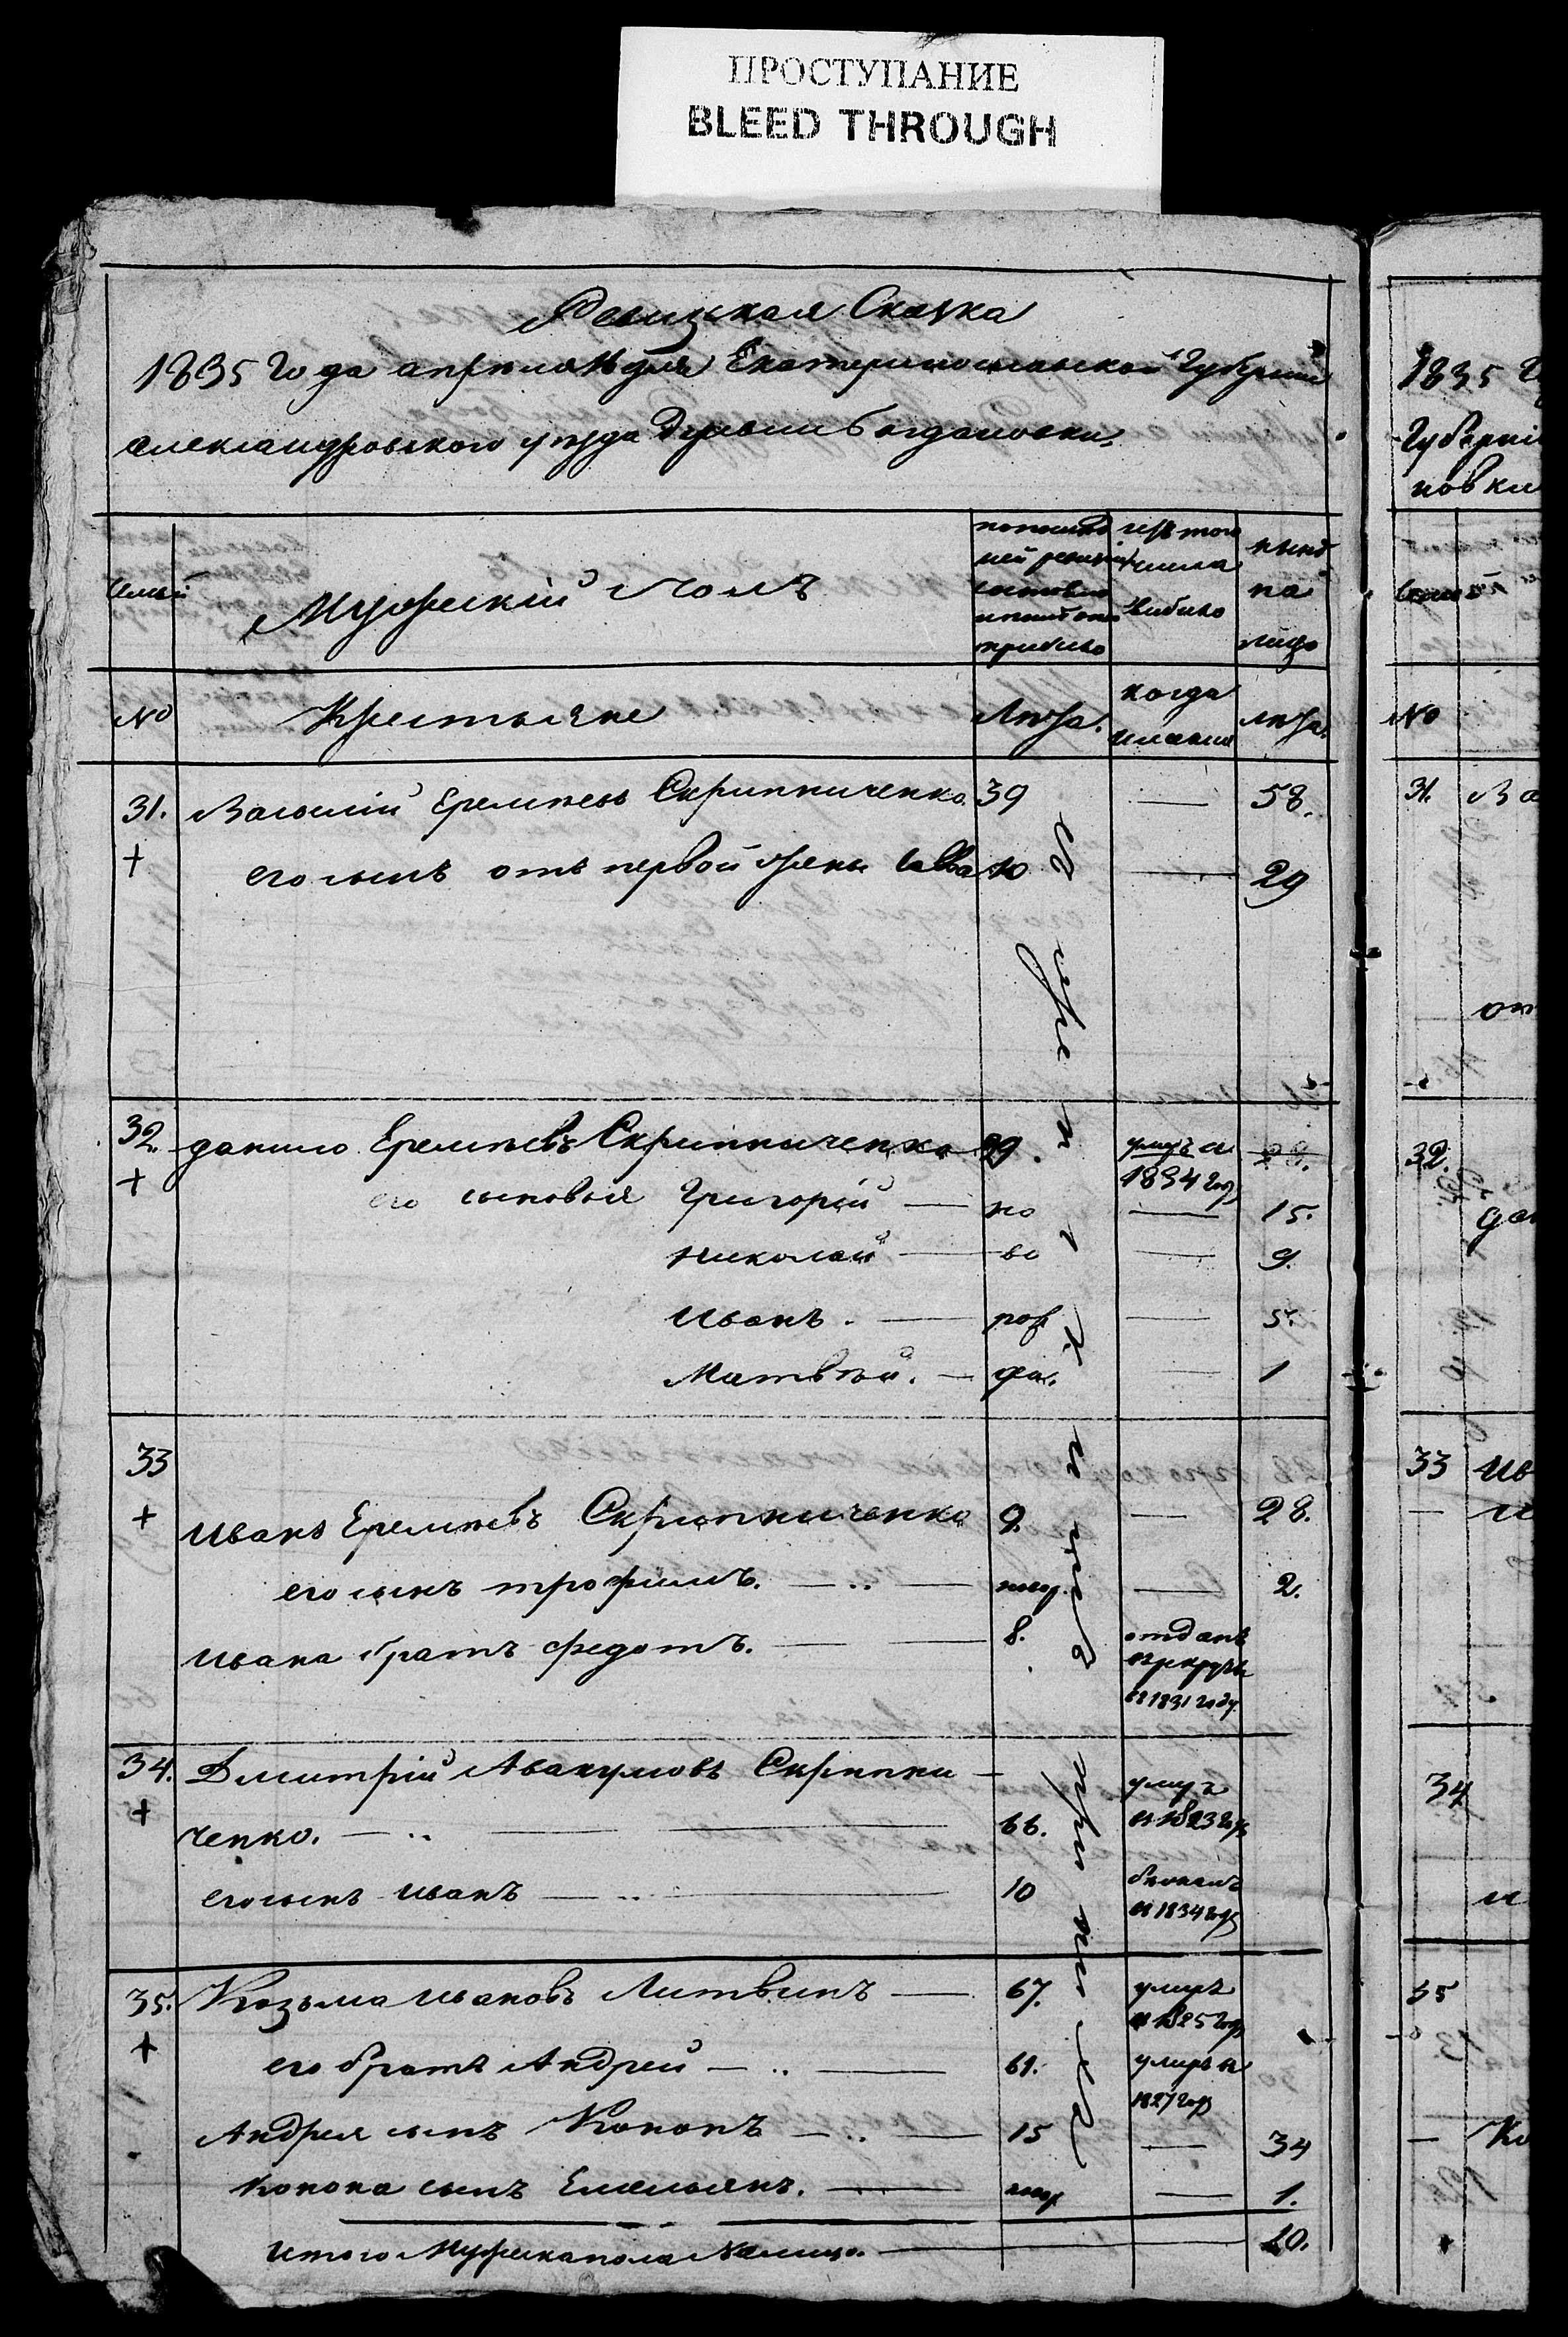 ПРОСТУПАНИЕ
BLEED THROUGH
Ревизская Сказка
1835 года апреля дня Екатеринославской Губернии
Александровского уезда Деревни Богдановки.
Семьи
Мужеский Полъ
по последней ревизии состояло и после того прибыло
изъ того числа выбыло
ныне на лицо
№ Крестьяне Лета. когда именно Лета.
31. Василий Еремеевъ Скрипниченко 39 — 58.
+ его сынъ отъ первой жены Савва 10 — 29
32. Данило Еремеевъ Скрипниченко 29. умръ в 1834 году
+ его сыновья Григорий — но — 15.
Николай — во — 9.
Иванъ. — рож — 5.
Матвей. — ден. — 1
33
+ Иванъ Еремеевъ Скрипниченко 9. — 28.
его сынъ трофимъ. — новор. — 2.
Ивана братъ федотъ. — 8. отданъ в рекруты в 1831 году
34. Дмитрий Авакумовъ Скрипни-
+ ченко. — 66. умръ в 1823 году
его сынъ Иванъ — 10 в 1834 году
35. Козьма Ивановъ Литвинъ — 67. умръ в 1825 году
+ его братъ Андрей — 61. умръ в 1827 году
Андрея сынъ Кононъ — 15 — 34
Конона сынъ Емельянъ. — новор — 1.
Итого Мужеска пола Налицо. — 10.
1835
Губерни
новки
№
31. Ва
32.
33 Ив
34
35